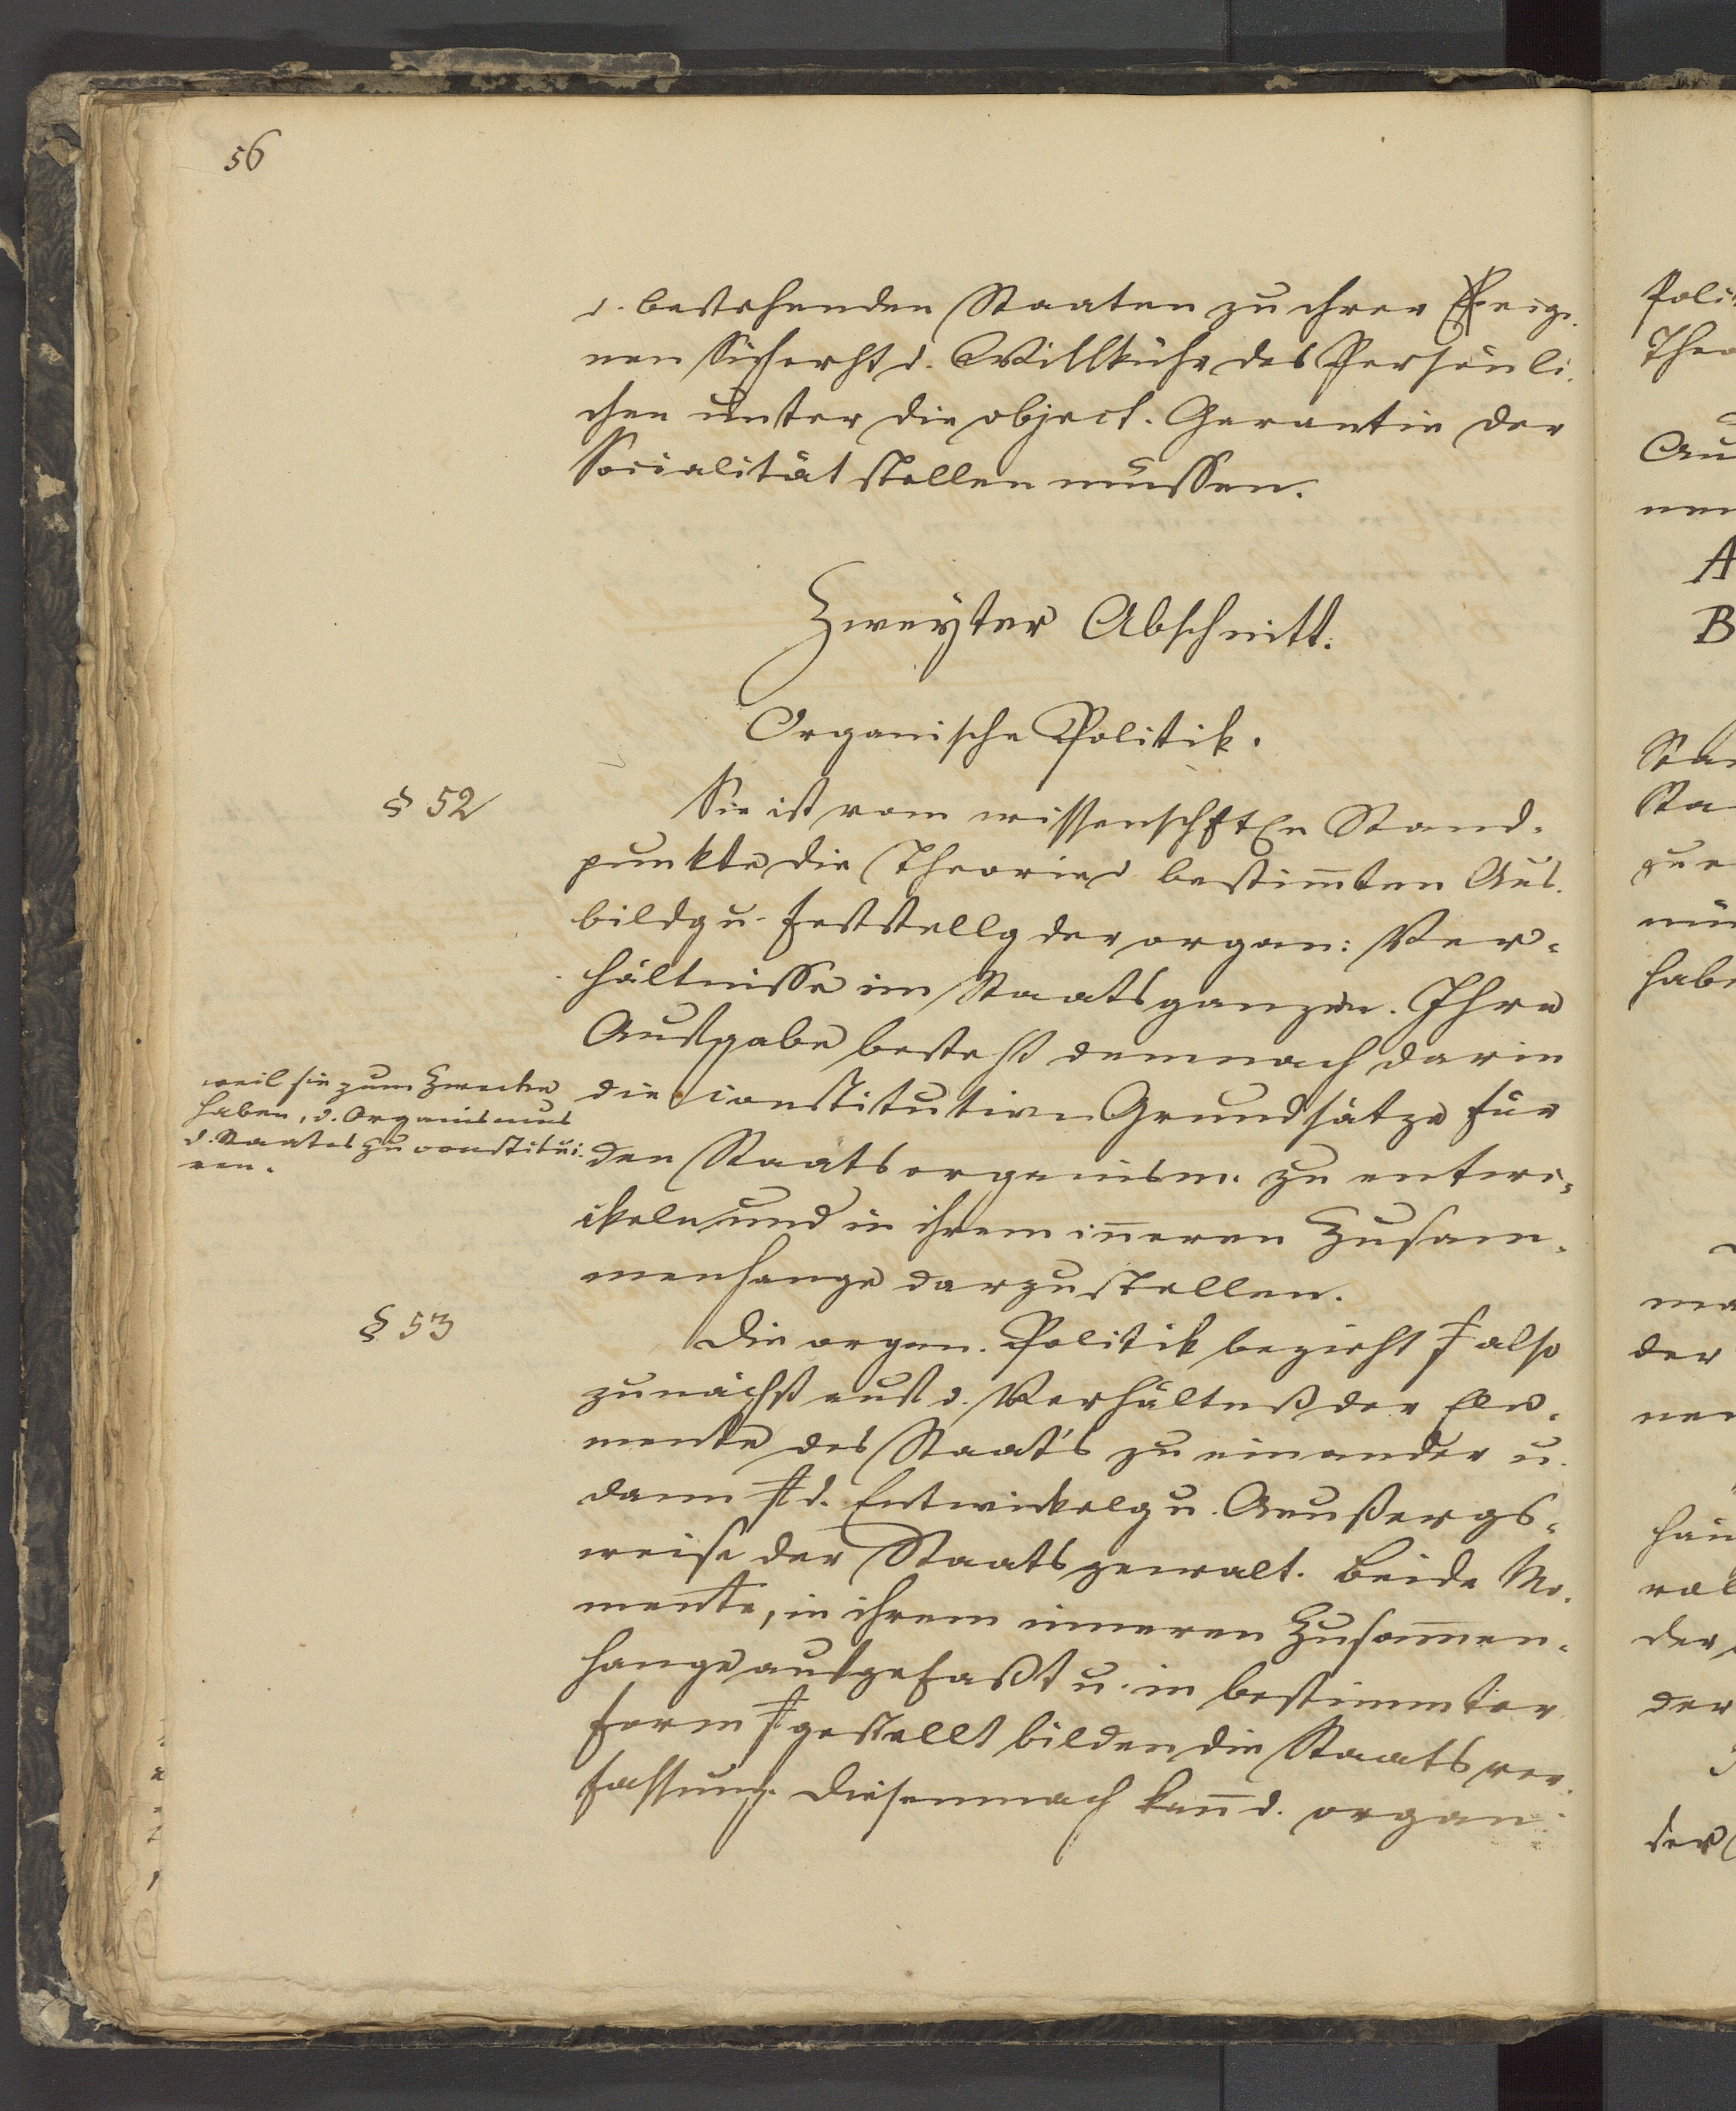 56
d. bestehenden Staaten zu ihrer eige-
nen Sicherht d. Willkühr des Persönli-
chen unter die object. Garantie der
Socialität stellen müssen.
Zweyter Abschnitt.
Organische Politik.
§ 52
Sie ist vom wissenschftlen Stand-
punkte die Theorie d bestim̄ten Aus-
bildg u. Feststellg der organ: Ver-
hältnisse im Staatsganzen. Ihre
Aufgabe besteht demnach darin
die constitutiven Grundsätze für
den Staatsorganism. zu entwi-
ckeln und in ihrem in̄eren Zusam-
menhange darzustellen.
weil sie zum Zwecke
haben, d. Organismus
d. Staates zu constitui-
ren.
§ 53
Die organ. Politik bezieht also
zunächst auf d. Verhältniß der Ele-
mente des Staat's zu einander u.
dann d. Entwickelg u. Aeußergs-
weise der Staatsgewalt. Beide Mo-
mente, in ihrem inneren Zusam̄en-
hange aufgefaßt u. in bestimmter
Form gestellt bilden die Staatsver-
fassung. Diesemnach kan̄ d. organ:
Poli
Theo
Au
nen
A
B
Sta
Sta
zu e
mü
habe
ma
der
nen
häu
ral
der
der
der